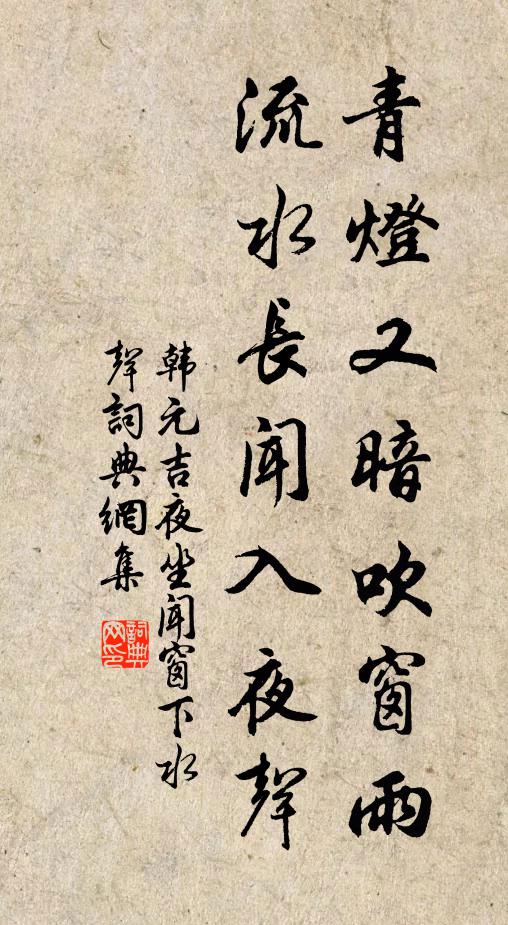 青燈又暗吹窗雨
流水長聞入夜聲
韩元吉夜坐闻窗下水
聲詞典網集
詞典
网印